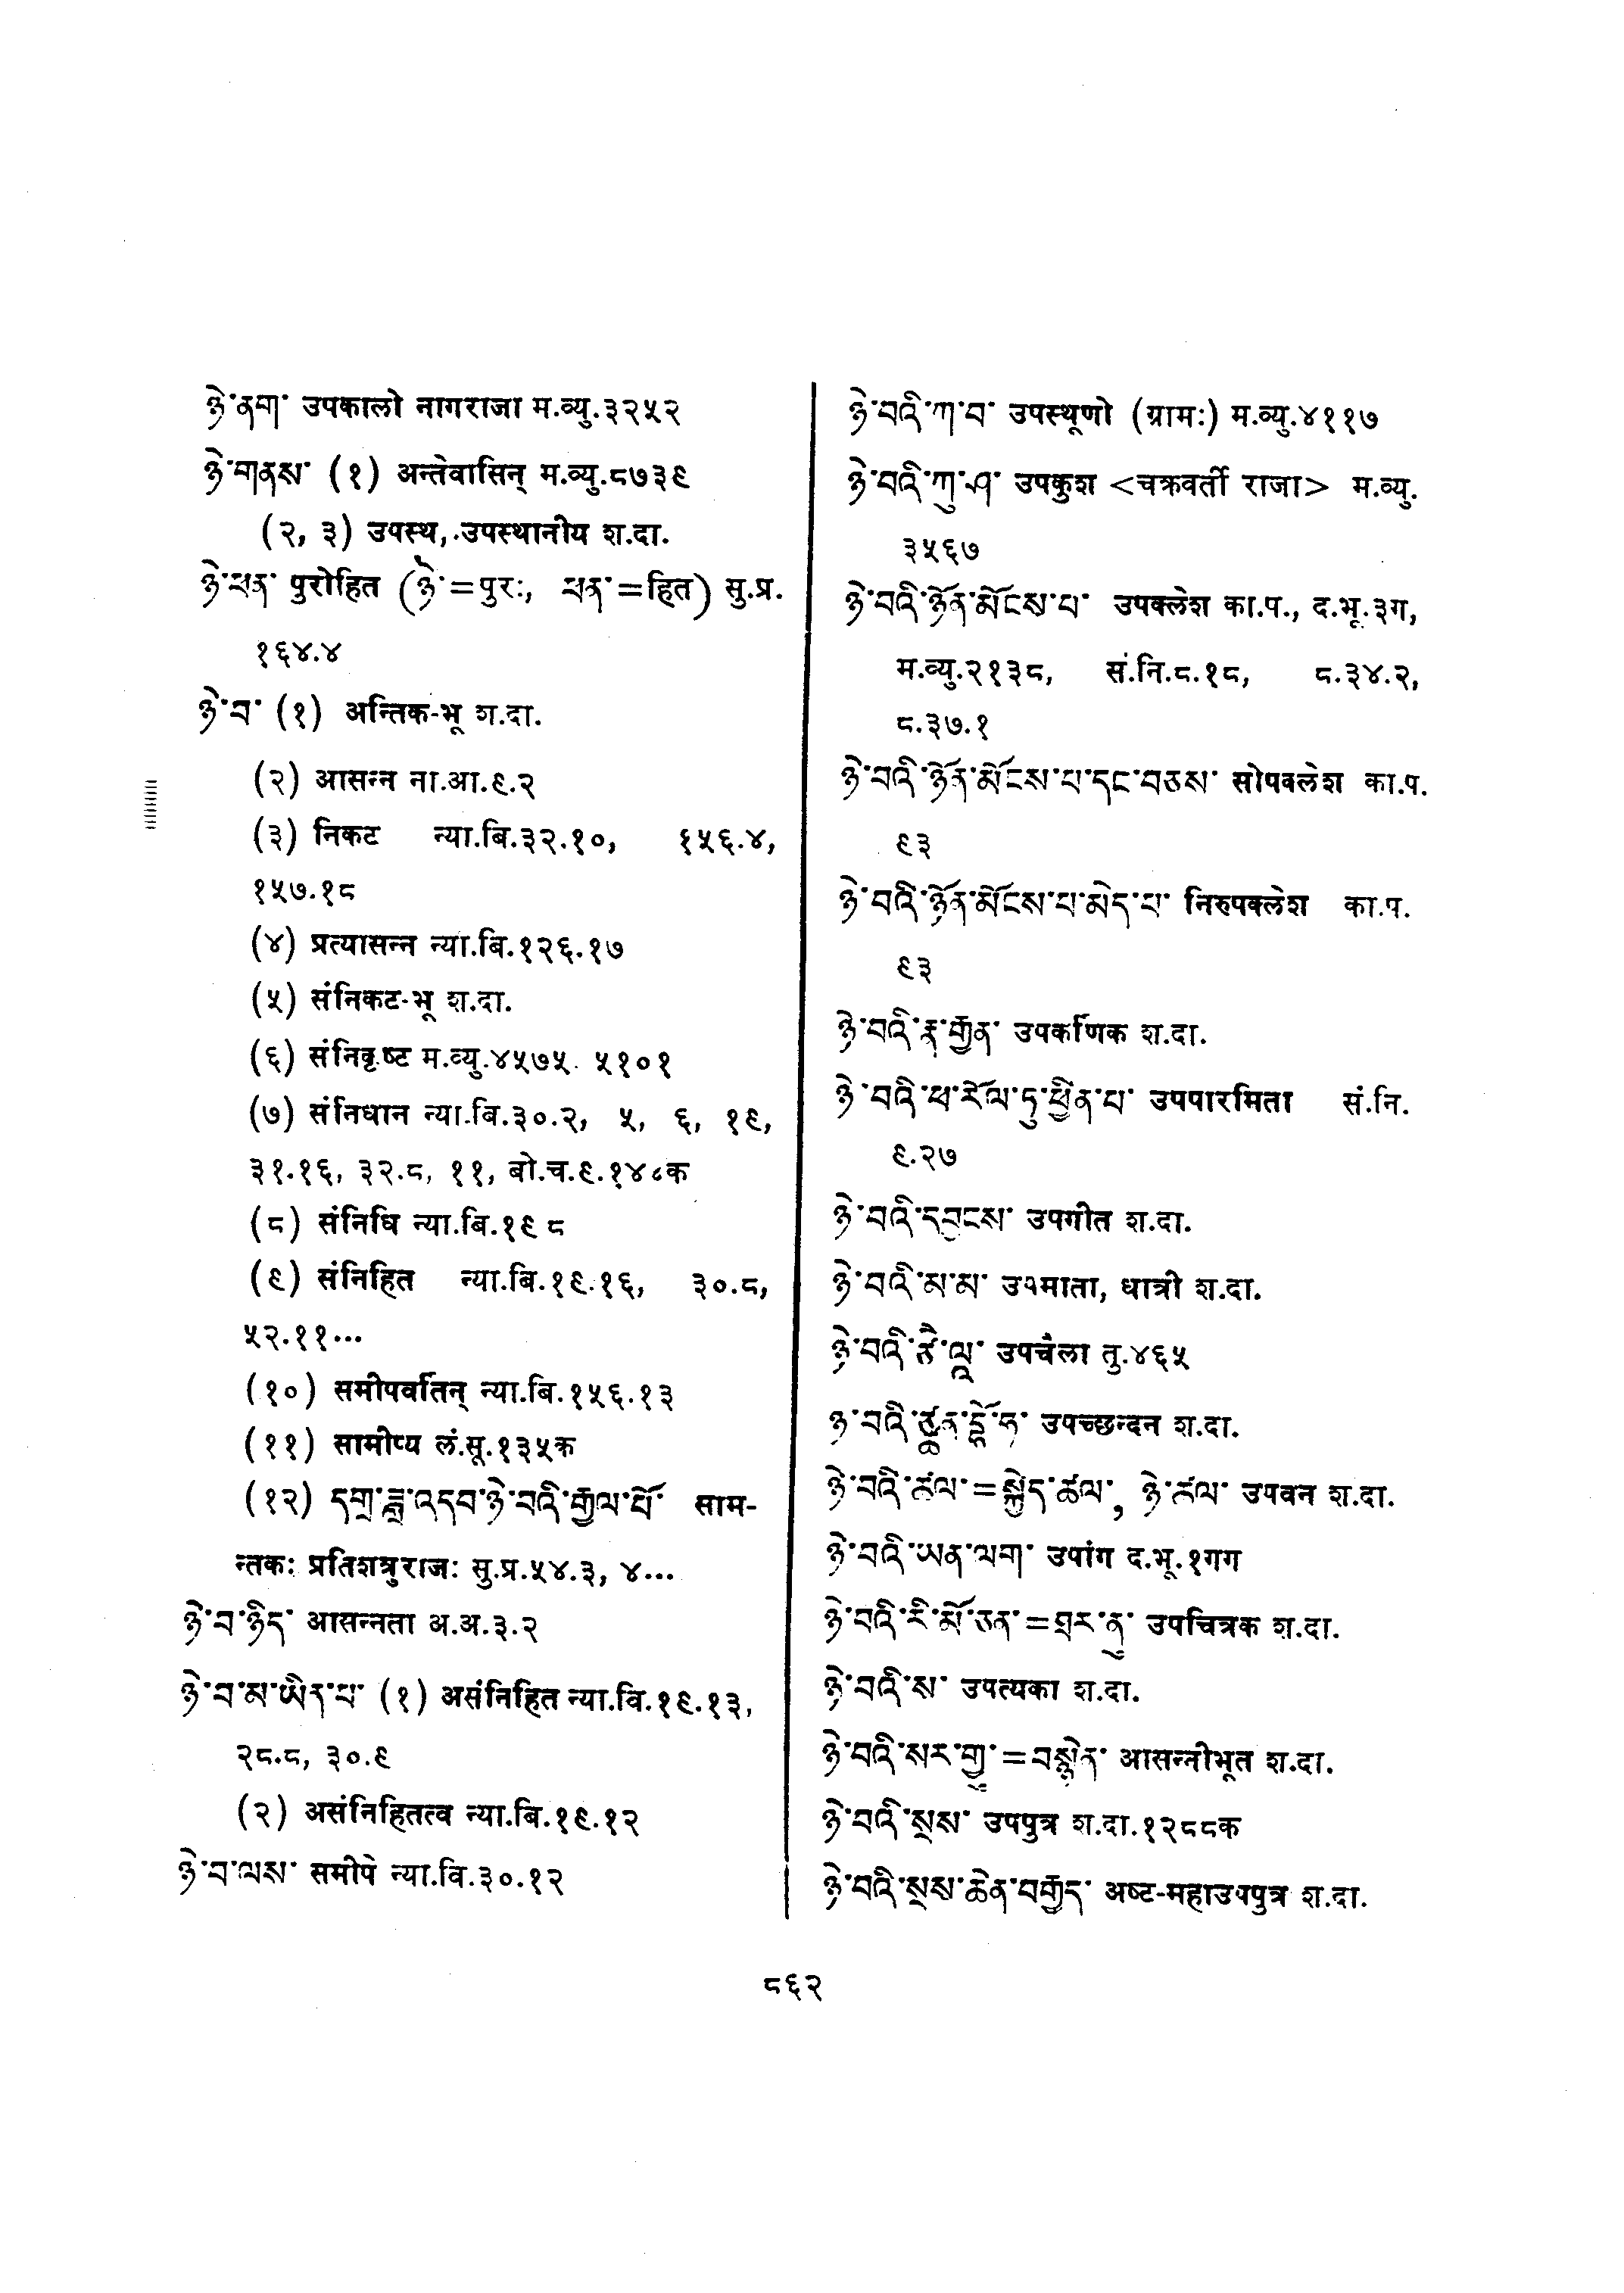 ཉེ་ནག་ उपकालो नागराजा म.व्यु.३२५२
ཉེ་གནས་ (१) अन्तेवासिन् म.व्यु.८७३९
(२, ३) उपस्थ, उपस्थानीय श.दा.
ཉེ་ཕན་ पुरोहित (ཉེ་=पुरः, ཕན་=हित) सु.प्र.
१६४.४
ཉེ་བ་ (१) अन्तिक-भू श.दा.
(२) आसन्न ना.आ.९.२
(३) निकट न्या.बि.३२.१०, १५६.४,
१५७.१८
(४) प्रत्यासन्न न्या.बि.१२६.१७
(५) संनिकट-भू श.दा.
(६) संनिकृष्ट म.व्यु.४५७५. ५१०१
(७) संनिधान न्या.बि.३०.२, ५, ६, १९,
३१.१६, ३२.८, ११, बो.च.९.१४८क
(८) संनिधि न्या.बि.१९ ८
(९) संनिहित न्या.बि.१९.१६, ३०.८,
५२.११...
(१०) समीपवर्तिन् न्या.बि.१५६.१३
(११) सामीप्य लं.सू.१३५क
(१२) དགྲ་ཟླ་འདབ་ཉེ་བའི་རྒྱལ་པོ་ साम-
न्तकः प्रतिशत्रुराजः सु.प्र.५४.३, ४...
ཉེ་བ་ཉིད་ आसन्नता अ.अ.३.२
ཉེ་བ་མ་ཡིན་པ་ (१) असंनिहित न्या.बि.१९.१३,
२८.८, ३०.९
(२) असंनिहितत्व न्या.बि.१९.१२
ཉེ་བ་ལས་ समीपे न्या.बि.३०.१२
ཉེ་བའི་ཀ་བ་ उपस्थूणो (ग्रामः) म.व्यु.४११७
ཉེ་བའི་ཀུ་ཤ་ उपकुश <चक्रवर्ती राजा> म.व्यु.
३५६७
ཉེ་བའི་ཉོན་མོངས་པ་ उपक्लेश का.प., द.भू.३ग,
म.व्यु.२१३८, सं.नि.८.१८, ८.३४.२,
८.३७.१
ཉེ་བའི་ཉོན་མོངས་པ་དང་བཅས་ सोपक्लेश का.प.
९३
ཉེ་བའི་ཉོན་མོངས་པ་མེད་པ་ निरुपक्लेश का.प.
९३
ཉེ་བའི་རྣ་རྒྱན་ उपकर्णिक श.दा.
ཉེ་བའི་ཕ་རོལ་ཏུ་ཕྱིན་པ་ उपपारमिता सं.नि.
९.२७
ཉེ་བའི་དབྱངས་ उपगीत श.दा.
ཉེ་བའི་མ་མ་ उपमाता, धात्री श.दा.
ཉེ་བའི་ཙེ་ལཱ་ उपचेला तु.४६५
उपच्छन्दन श.दा.
ཉེ་བའི་ཚལ་=སྐྱེད་ཚལ་, ཉེ་ཚལ་ उपवन श.दा.
ཉེ་བའི་ཡན་ལག་ उपांग द.भू.१गग
ཉེ་བའི་རི་མོ་ཅན་=བྲར་ནུ་ उपचित्रक श.दा.
ཉེ་བའི་ས་ उपत्यका श.दा.
ཉེ་བའི་སར་གྱུ་=བསྙེན་ आसन्नीभूत श.दा.
ཉེ་བའི་སྲས་ उपपुत्र श.दा.१२८८क
ཉེ་བའི་སྲས་ཆེན་བརྒྱད་ अष्ट-महाउपपुत्र श.दा.
८६२